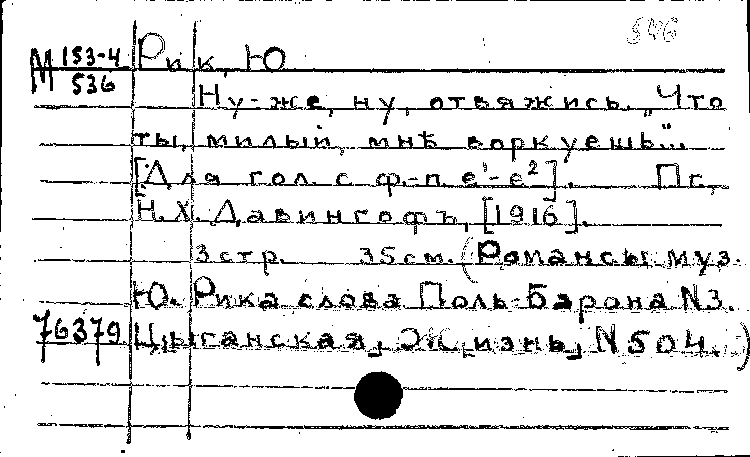 546
М 153-4 Рик, Ю
536
Ну-же, ну, отвяжись. „Что
ты, милый, мнѣ воркуешь"...
[Для гол. с ф.-п. e¹-e²]. Пг.,
Н. Х. Давингофъ, [1916].
3 стр. 35 см. (Романсы муз.
Ю. Рика слова Поль-Барона N3.
76379 Цыганская Жизнь, N 504.)